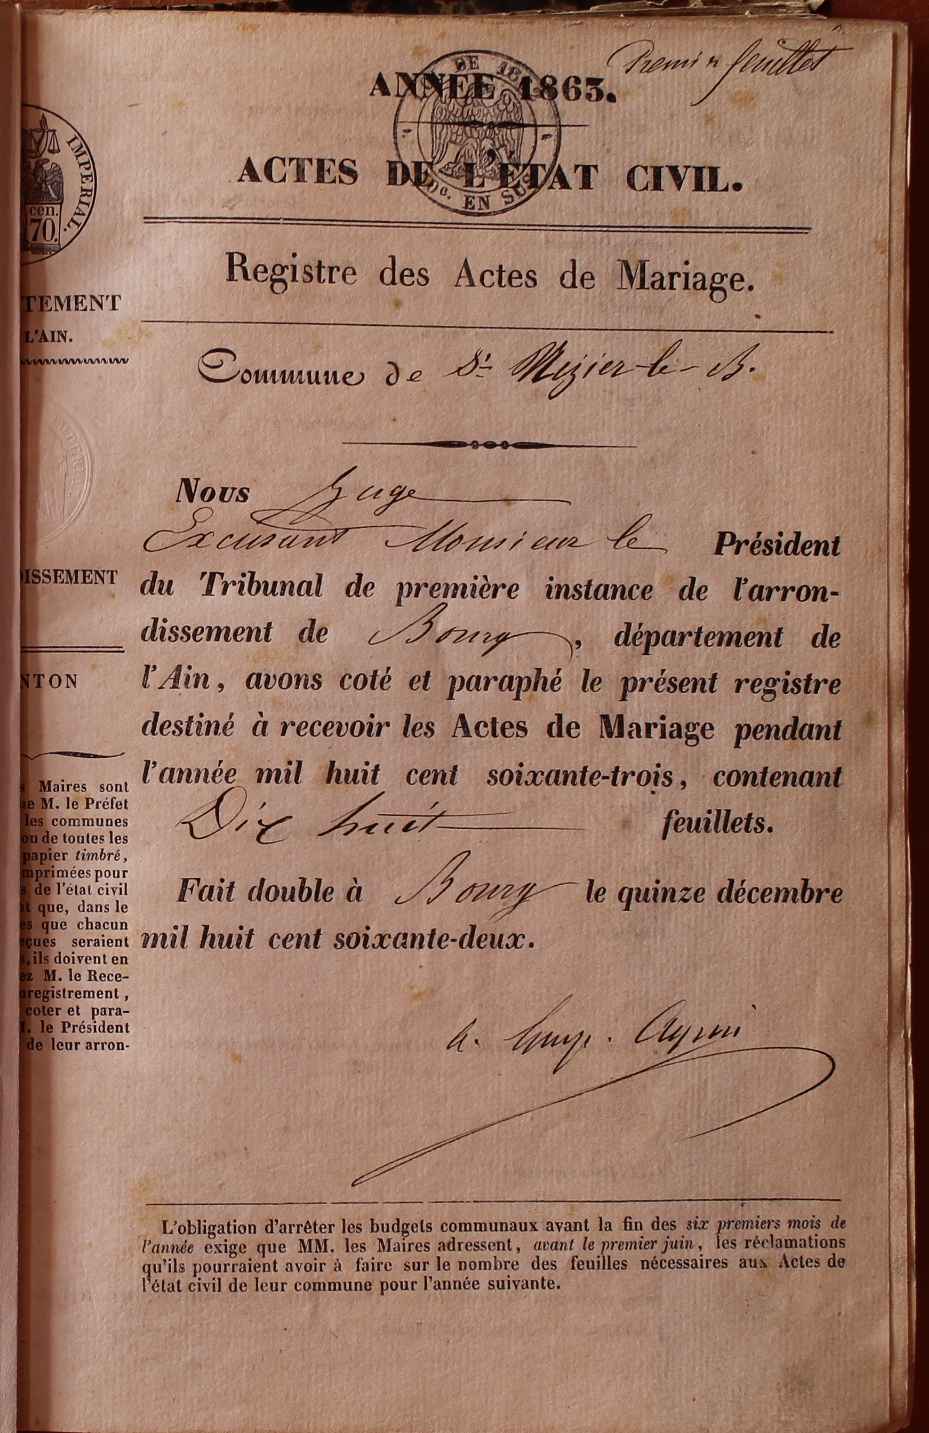 Premier feuillet
ANNÉE 1863.
DE 18
EN SUS
ACTES DE L'ÉTAT CIVIL.
Registre des Actes de Mariage.
Commune de St Nizier-le-B.
Nous
Excusant Monsieur le Président
du Tribunal de première instance de l'arron-
dissement de Bourg, département de
l'Ain, avons coté et paraphé le présent registre
destiné à recevoir les Actes de Mariage pendant
l'année mil huit cent soixante-trois, contenant
Dix huit feuillets.
Fait double à Bourg le quinze décembre
mil huit cent soixante-deux.
L'obligation d'arrêter les budgets communaux avant la fin des six premiers mois de
l'année exige que MM. les Maires adressent, avant le premier juin, les réclamations
qu'ils pourraient avoir à faire sur le nombre des feuilles nécessaires aux Actes de
l'état civil de leur commune pour l'année suivante.
IMPERIAL.
cen.
70.
TEMENT
L'AIN.
ISSEMENT
NTON
Maires sont
M. le Préfet
les communes
on de toutes les
papier timbré,
mprimées pour
de l'état civil
que, dans le
que chacun
seraient
ils doivent en
M. le Rece-
registrement,
coter et para-
le Président
de leur arron-